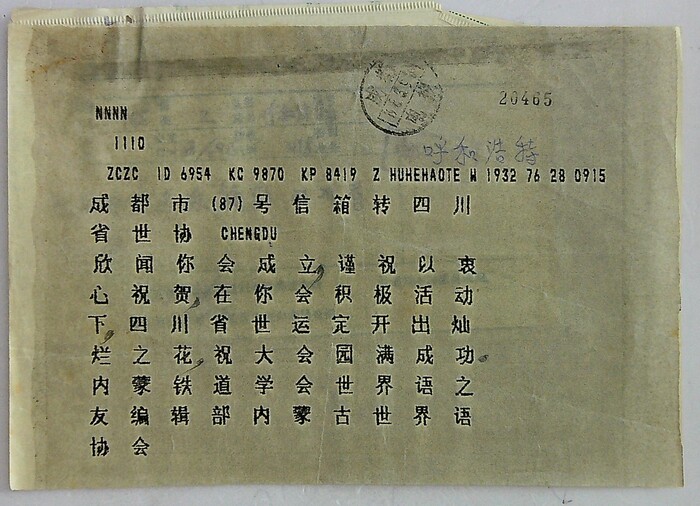 20465
NNNN
1110
呼和浩特
ZCZC ID 6954 KC 9870 KP 8419 Z HUHEHAOTE W 1932 76 28 0915
成都市(87)号信箱转四川
省世协 CHENGDU
欣闻你会成立,谨祝以衷
心祝贺,在你会积极活动
下四川省世运定开出灿
烂之花,祝大会园满成功。
内蒙铁道学会世界语之
友编辑部内蒙古世界语
协会